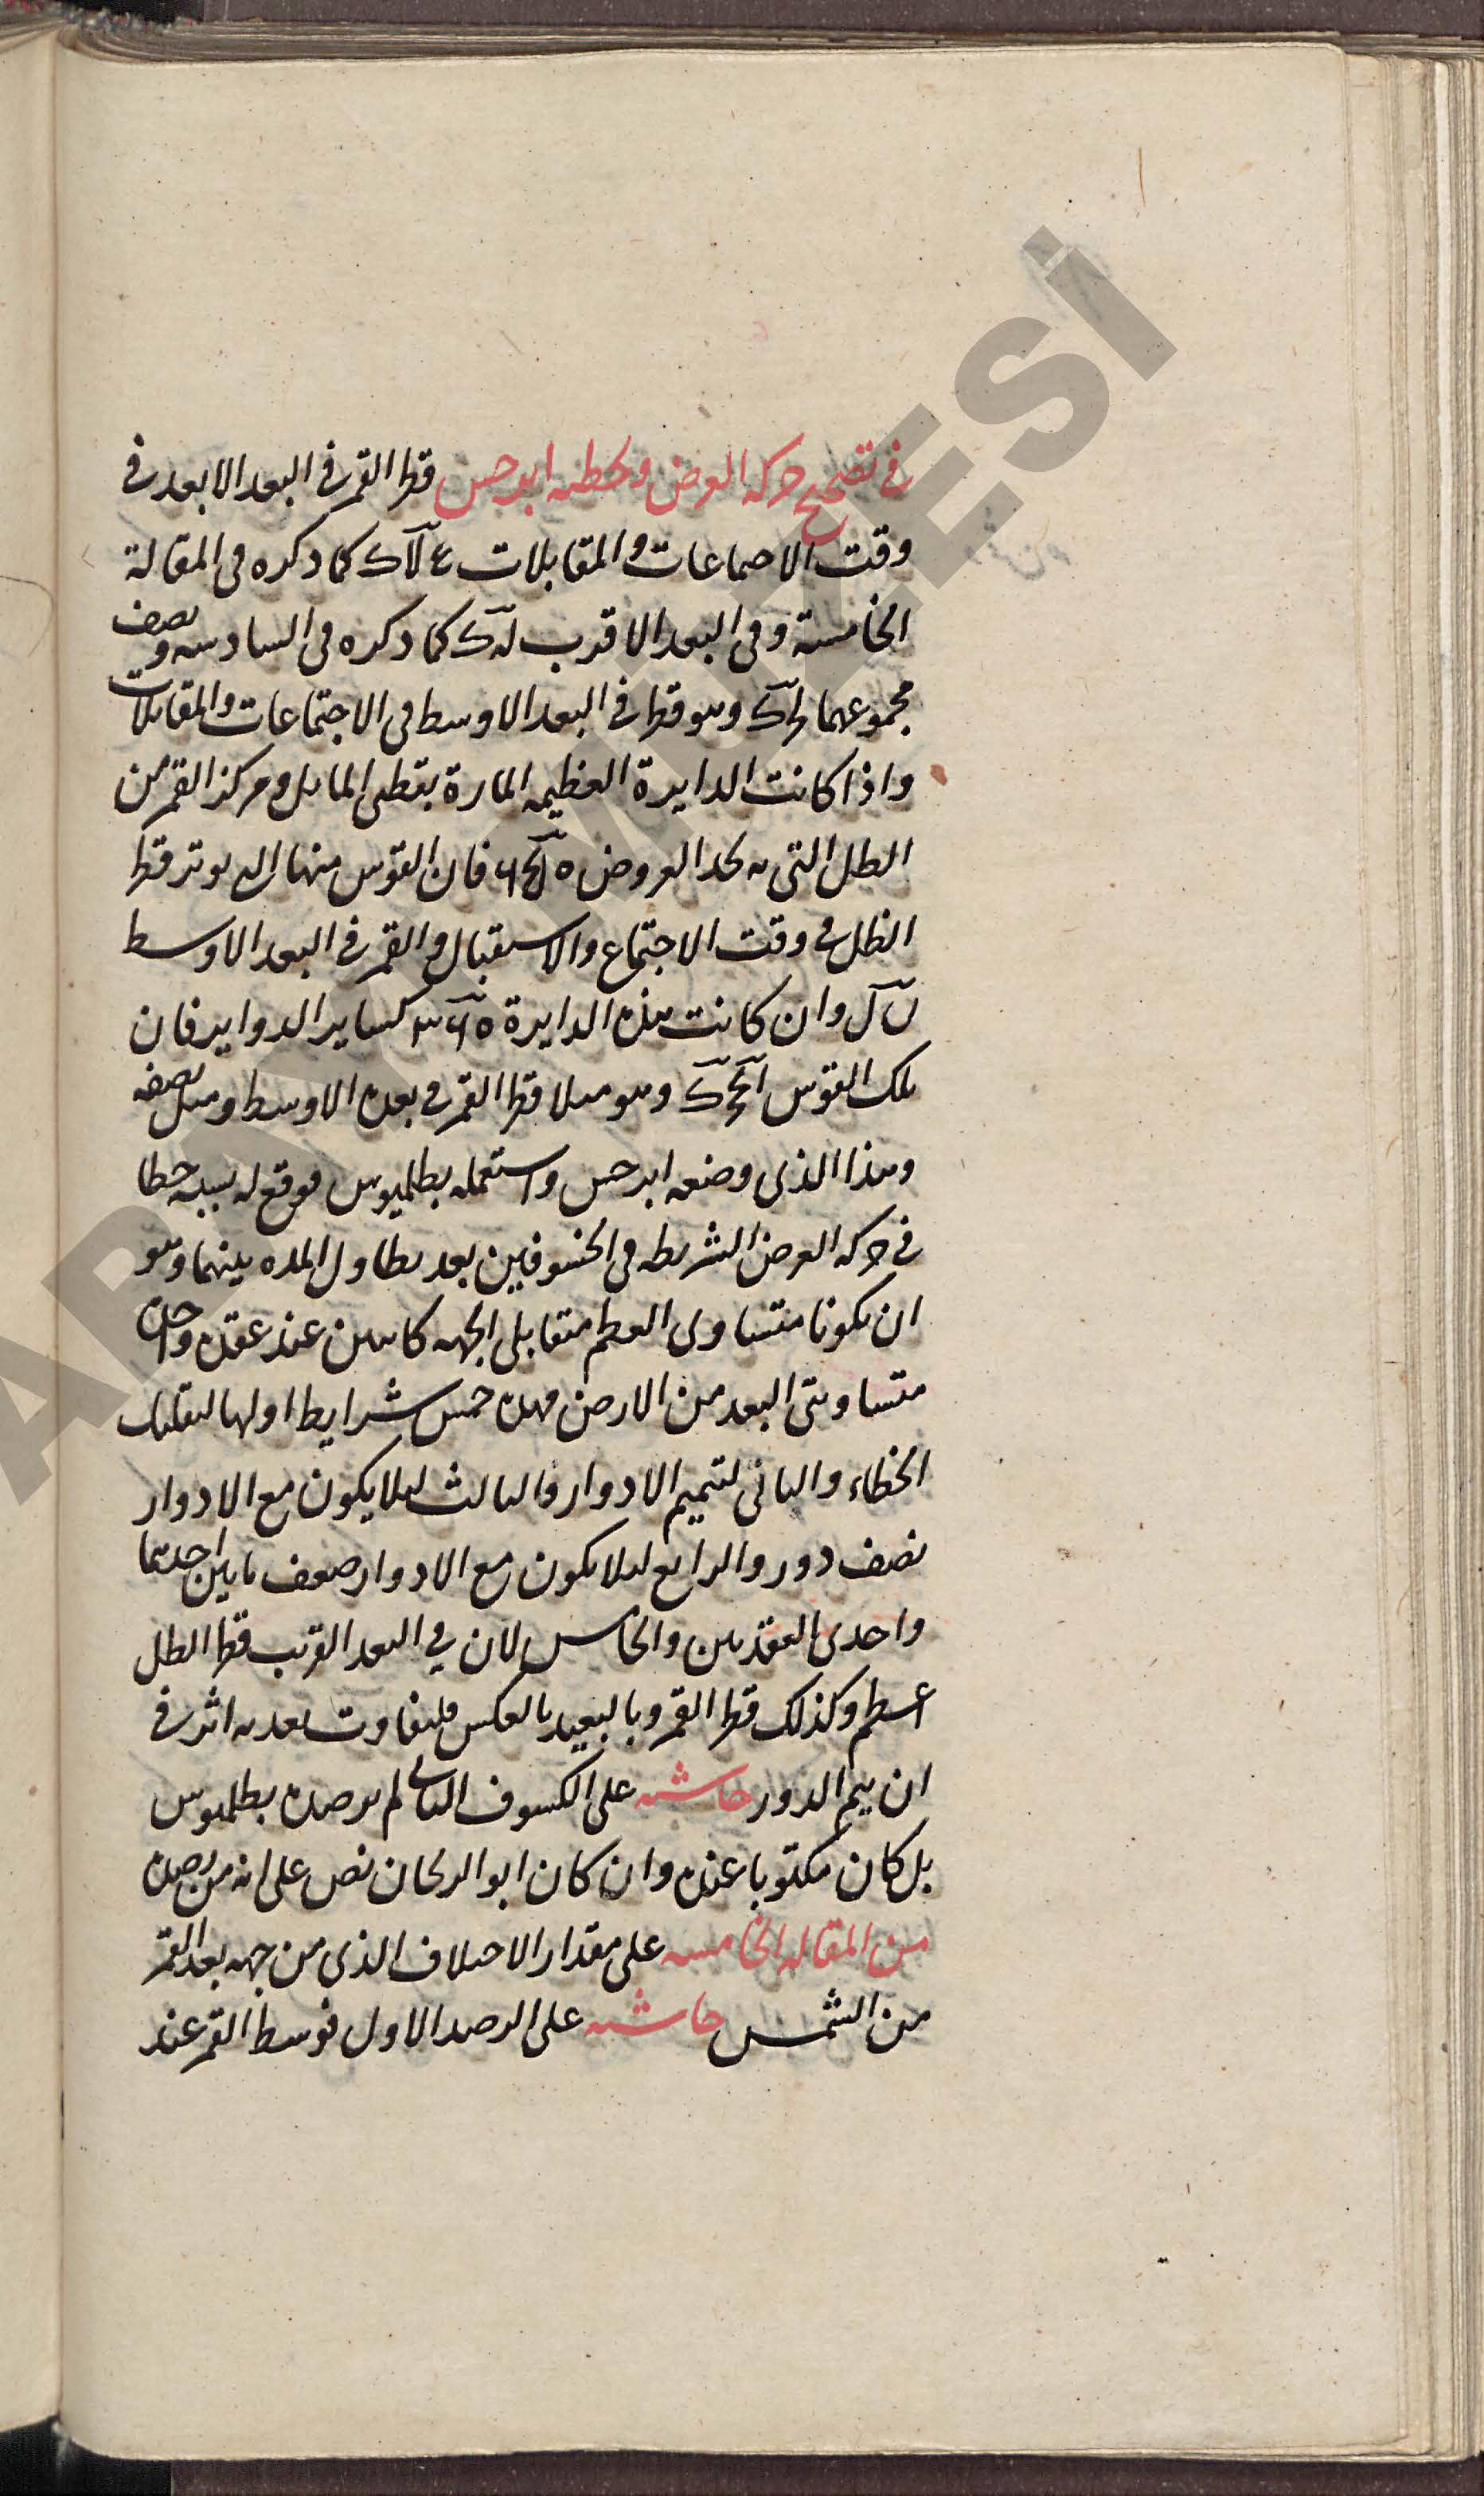 في تصحيح حركه العرض وتخطئه ابرخس قطر القمر في البعد الابعد في
وقت الاجماعات والمقابلات لاك كما ذكره في المقالة
الخامسة وفي البعد الاقرب له ك كما ذكره في السادسه ونصف
مجموعهما وهو قطر في البعد الاوسط في الاجتماعات والمقابلات
واذا كانت الدايرة العظيمه المارة بقطبى المايل ومركز القمر من
الظل التي بحد العروض فان القوس منها التى يوتر قطر
الظل في وقت الاجتماع والاستقبال والقمر في البعد الاوسط
وان كانت هذه الدايرة كساير الدواير فان
تلك القوس وهو مثلا قطر القمر في بعده الاوسط ومثل نصفه
وهذا الذى وضعه ابرخس واستعمله بطلميوس فوقع له بسببه خطا
في حركه العرض الشريطه في الخسوفين بعد تطاول المده بينهما وهو
ان يكونا متساوى العظم متقابلى الجهه كاينين عند عقدة واحدة
متساويتى البعد من الارض فهذه خمس شرايط اولها لتقليل
الخطاء والثانى لتميم الادوار والثالث لئلا يكون مع الادوار
نصف دور والرابع لئلا يكون مع الادوار ضعف ما بين احديهما
واحدى العقدتين والخامس لان في البعد القريب قطر الظل
اعظم وكذلك قطر القمر وبالبعيد بالعكس فلتفاوت بعديه اثر في
ان يتم الدور حاشيه على الكسوف الثاني لم يرصده بطلميوس
بل كان مكتوبا عنده وان كان ابو الريحان نص على انه من رصده
من المقاله الخامسه على مقدار الاختلاف الذي من جهه بعد القمر
من الشمس حاشيه على الرصد الاول فوسط القمر عند
ARMA MÜZESİ